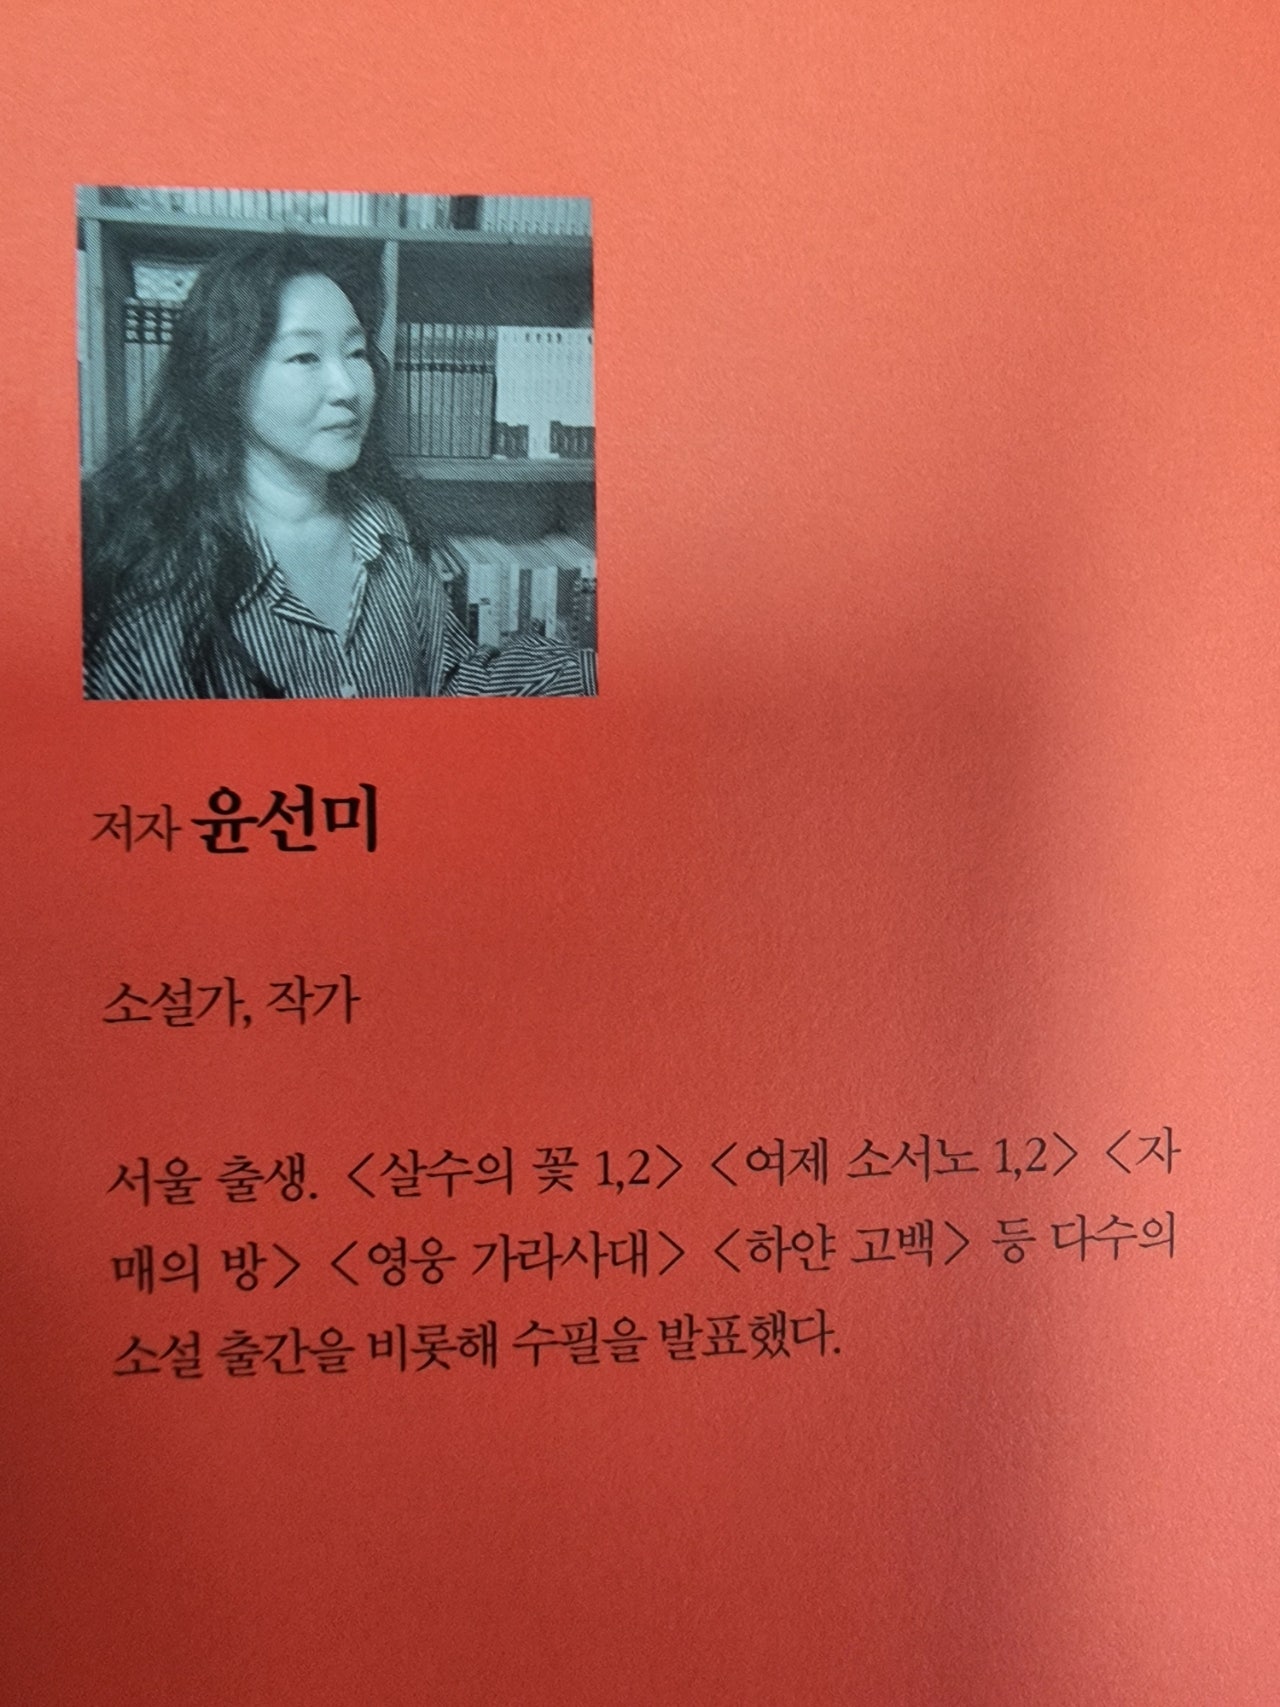 저자 윤선미
소설가, 작가
서울 출생. <살수의 꽃 1,2> <여제 소서노 1,2> <자
매의 방> <영웅 가라사대> <하얀 고백> 등 다수의
소설 출간을 비롯해 수필을 발표했다.